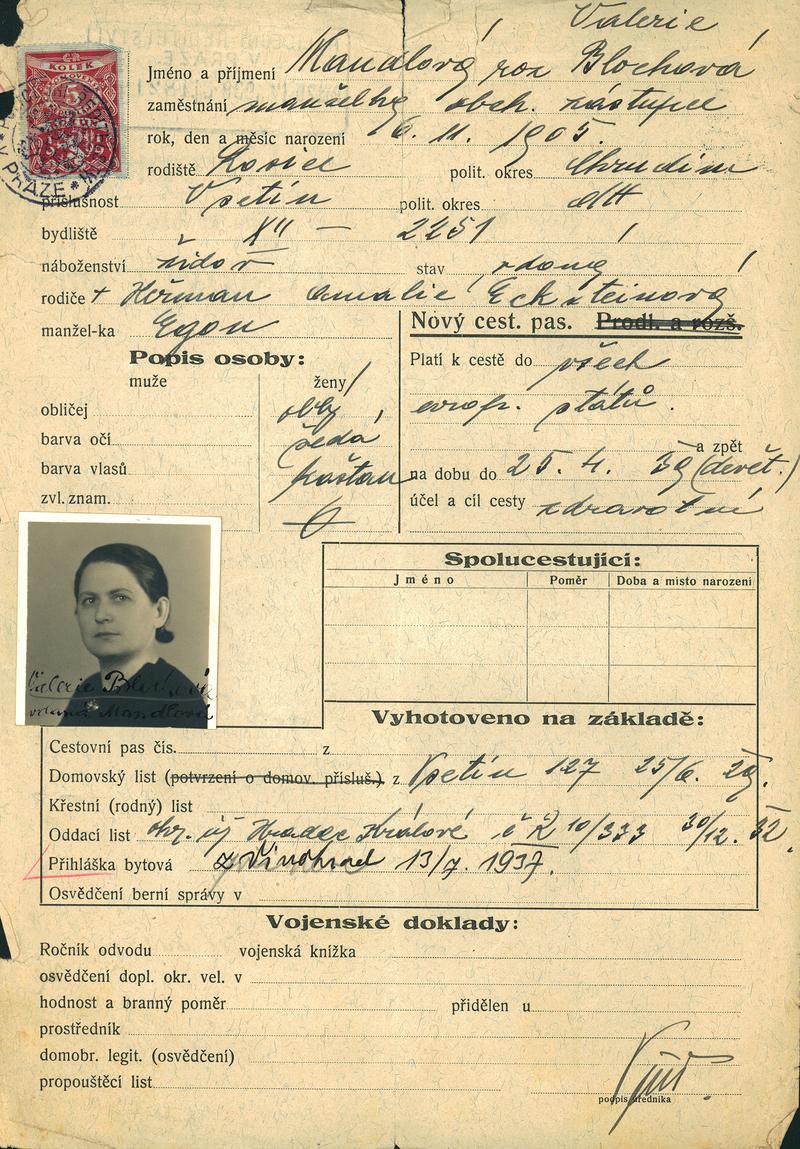 Valerie
Jméno a příjmení Mandlová roz Blochová
zaměstnání manželka obch. zástupce
rok, den a měsíc narození 6. 11. 1905.
rodiště Kosice polit. okres Chrudim
příslušnost Vsetín polit. okres dtt
bydliště XII — 2251
náboženství židov stav vdaná
rodiče + Heřman Amalie Ecksteinová
manžel-ka Egon
Nový cest. pas. Prodl. a rozš.
Popis osoby:
muže ženy
Platí k cestě do všech
obličej obl.
evrop. států.
barva očí šedá
a zpět
barva vlasů kaštan
na dobu do 25. 4. 39 (devět.)
zvl. znam.
účel a cíl cesty zdravotní
Spolucestující:
Jméno Poměr Doba a místo narození
Valerie Blochová
vdaná Mandlová
Vyhotoveno na základě:
Cestovní pas čís. z
Domovský list (potvrzení o domov. přísluš.) z Vsetín 127 25/6. 29.
Křestní (rodný) list
Oddací list okr. úř Hradec Králové č R 10/333 30/12. 32.
Přihláška bytová z Vinohrad 13/7. 1937.
Osvědčení berní správy v
Vojenské doklady:
Ročník odvodu vojenská knížka
osvědčení dopl. okr. vel. v
hodnost a branný poměr přidělen u
prostředník
domobr. legit. (osvědčení)
propouštěcí list
podpis úředníka
ČR
KOLEK
5
V PRAZE